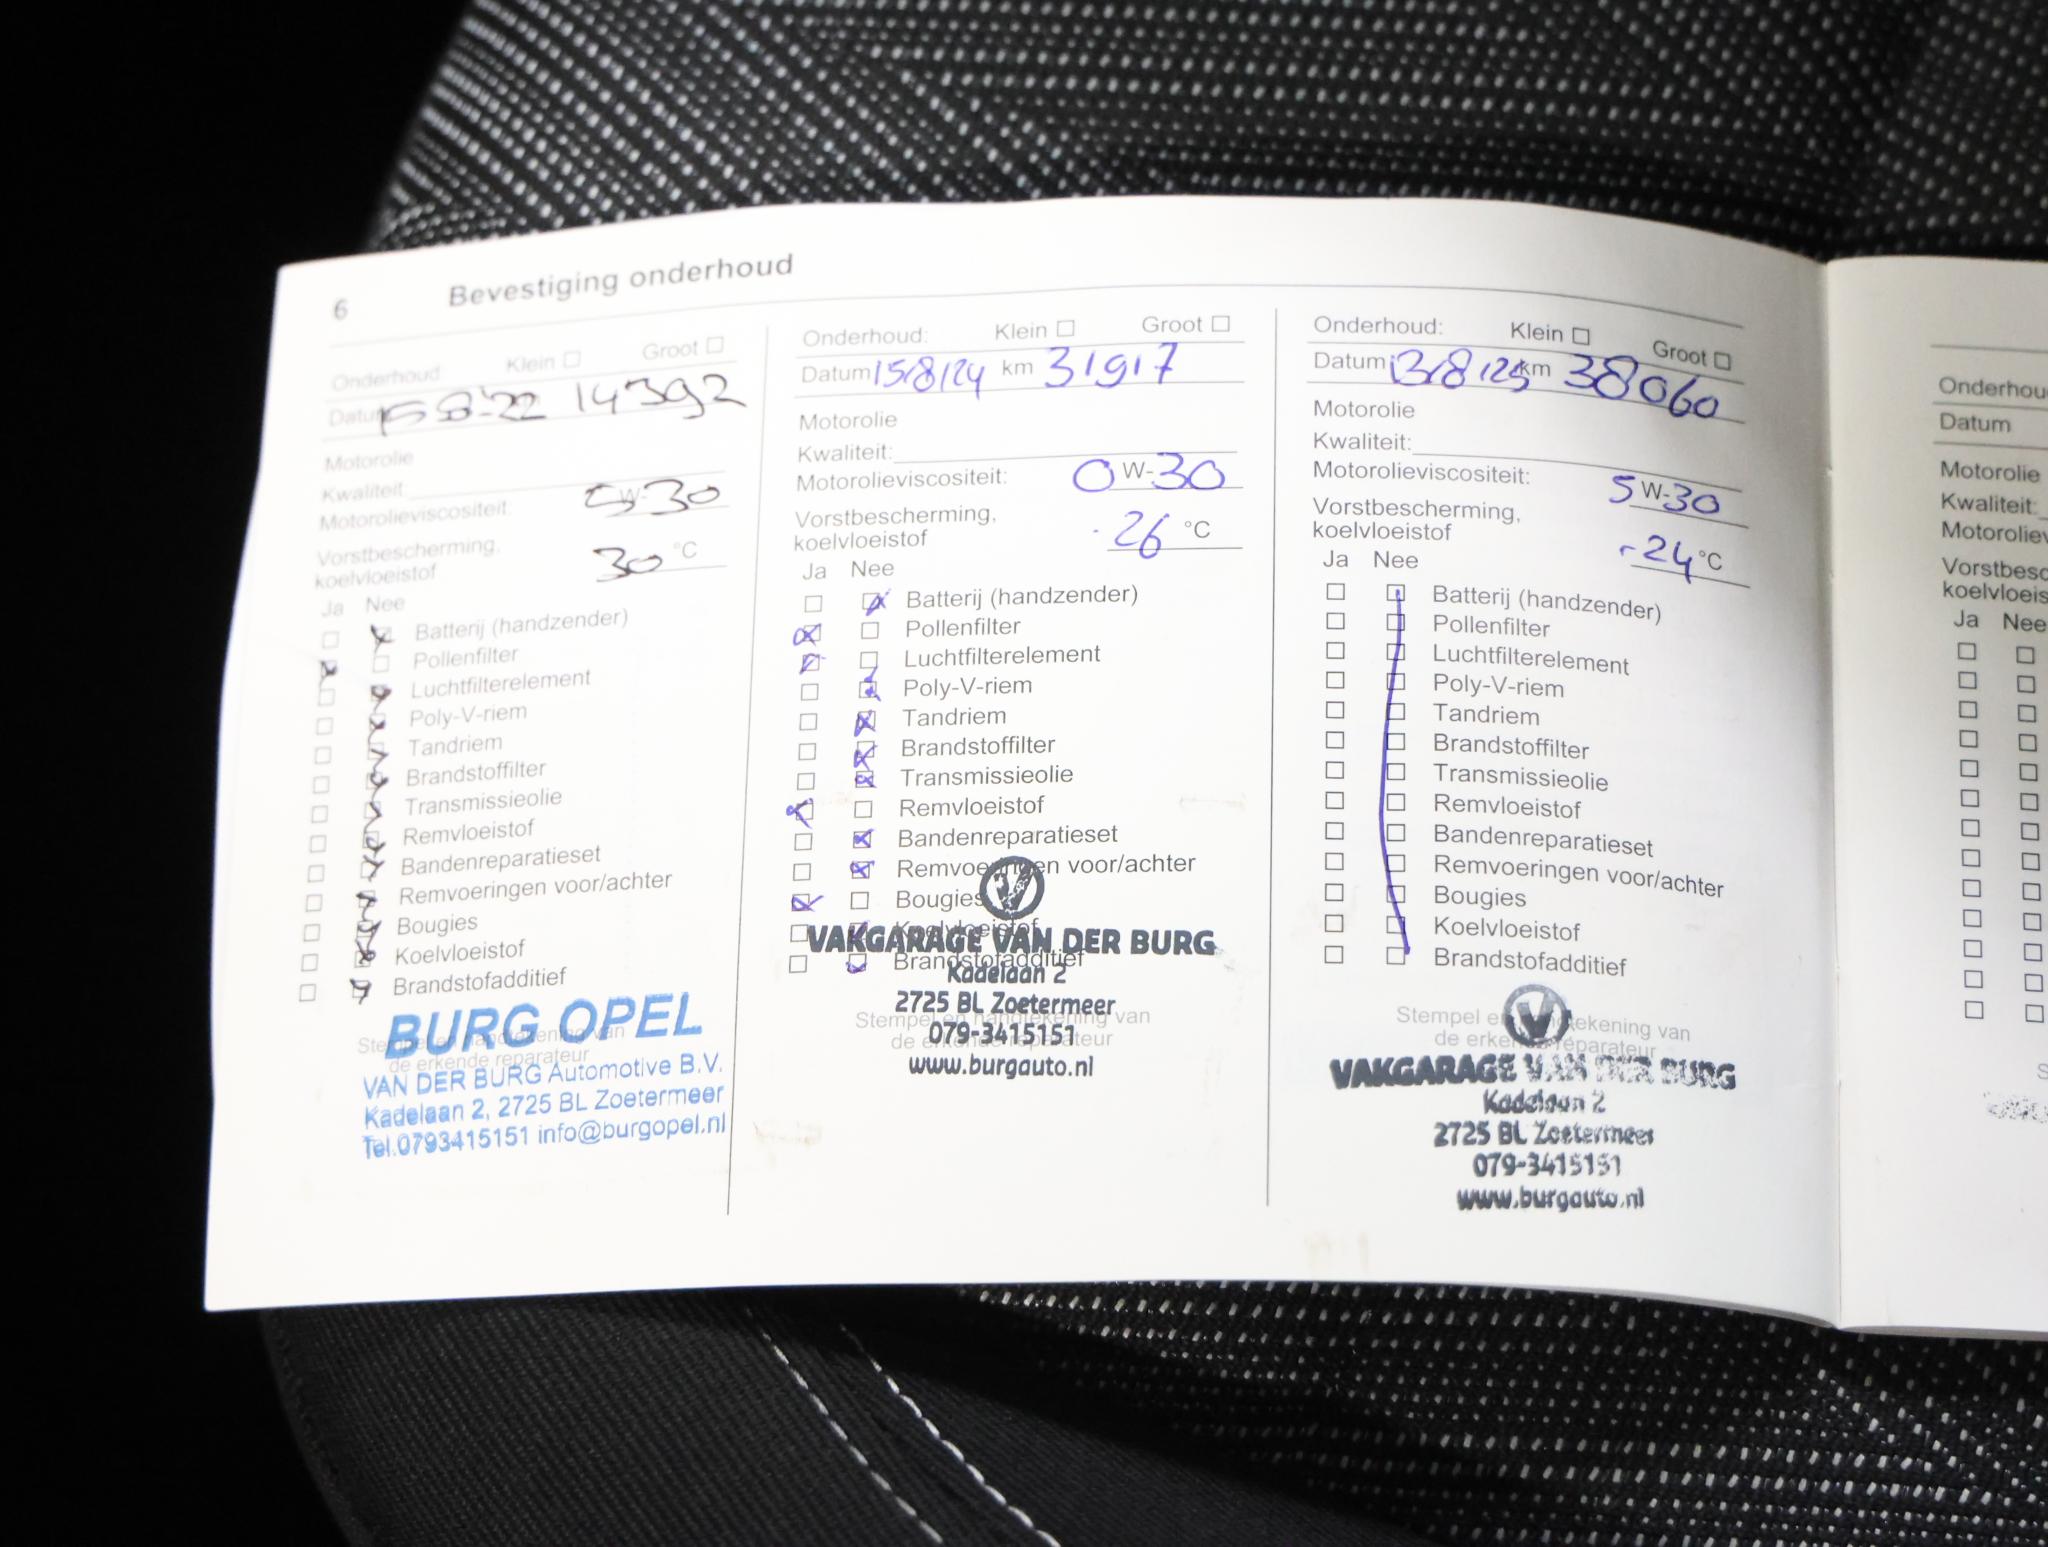 6 Bevestiging onderhoud
Onderhoud Klein Groot
Datum 15 8-22 14392
Motorolie
Kwaliteit:
Motorolieviscositeit: 5 W- 30
Vorstbescherming,
koelvloeistof 30 °C
Ja Nee
Batterij (handzender)
Pollenfilter
Luchtfilterelement
Poly-V-riem
Tandriem
Brandstoffilter
Transmissieolie
Remvloeistof
Bandenreparatieset
Remvoeringen voor/achter
Bougies
Koelvloeistof
Brandstofadditief
Stempel en handtekening van
de erkende reparateur
BURG OPEL
VAN DER BURG Automotive B.V.
Kadelaan 2, 2725 BL Zoetermeer
Tel.0793415151 info@burgopel.nl
Onderhoud: Klein Groot
Datum 15/8/24 km 31917
Motorolie
Kwaliteit:
Motorolieviscositeit: 0 W- 30
Vorstbescherming,
koelvloeistof -26 °C
Ja Nee
Batterij (handzender)
Pollenfilter
Luchtfilterelement
Poly-V-riem
Tandriem
Brandstoffilter
Transmissieolie
Remvloeistof
Bandenreparatieset
Remvoeringen voor/achter
Bougies
Koelvloeistof
Brandstofadditief
Stempel en handtekening van
de erkende reparateur
VAKGARAGE VAN DER BURG
Kadelaan 2
2725 BL Zoetermeer
079-3415151
www.burgauto.nl
Onderhoud: Klein Groot
Datum 13/8/25 km 38060
Motorolie
Kwaliteit:
Motorolieviscositeit: 5 W- 30
Vorstbescherming,
koelvloeistof -24 °C
Ja Nee
Batterij (handzender)
Pollenfilter
Luchtfilterelement
Poly-V-riem
Tandriem
Brandstoffilter
Transmissieolie
Remvloeistof
Bandenreparatieset
Remvoeringen voor/achter
Bougies
Koelvloeistof
Brandstofadditief
Stempel en handtekening van
de erkende reparateur
VAKGARAGE VAN DER BURG
Kadelaan 2
2725 BL Zoetermeer
079-3415151
www.burgauto.nl
Onderhou
Datum
Motorolie
Kwaliteit:
Motoroliev
Vorstbesc
koelvloeis
Ja Nee
S